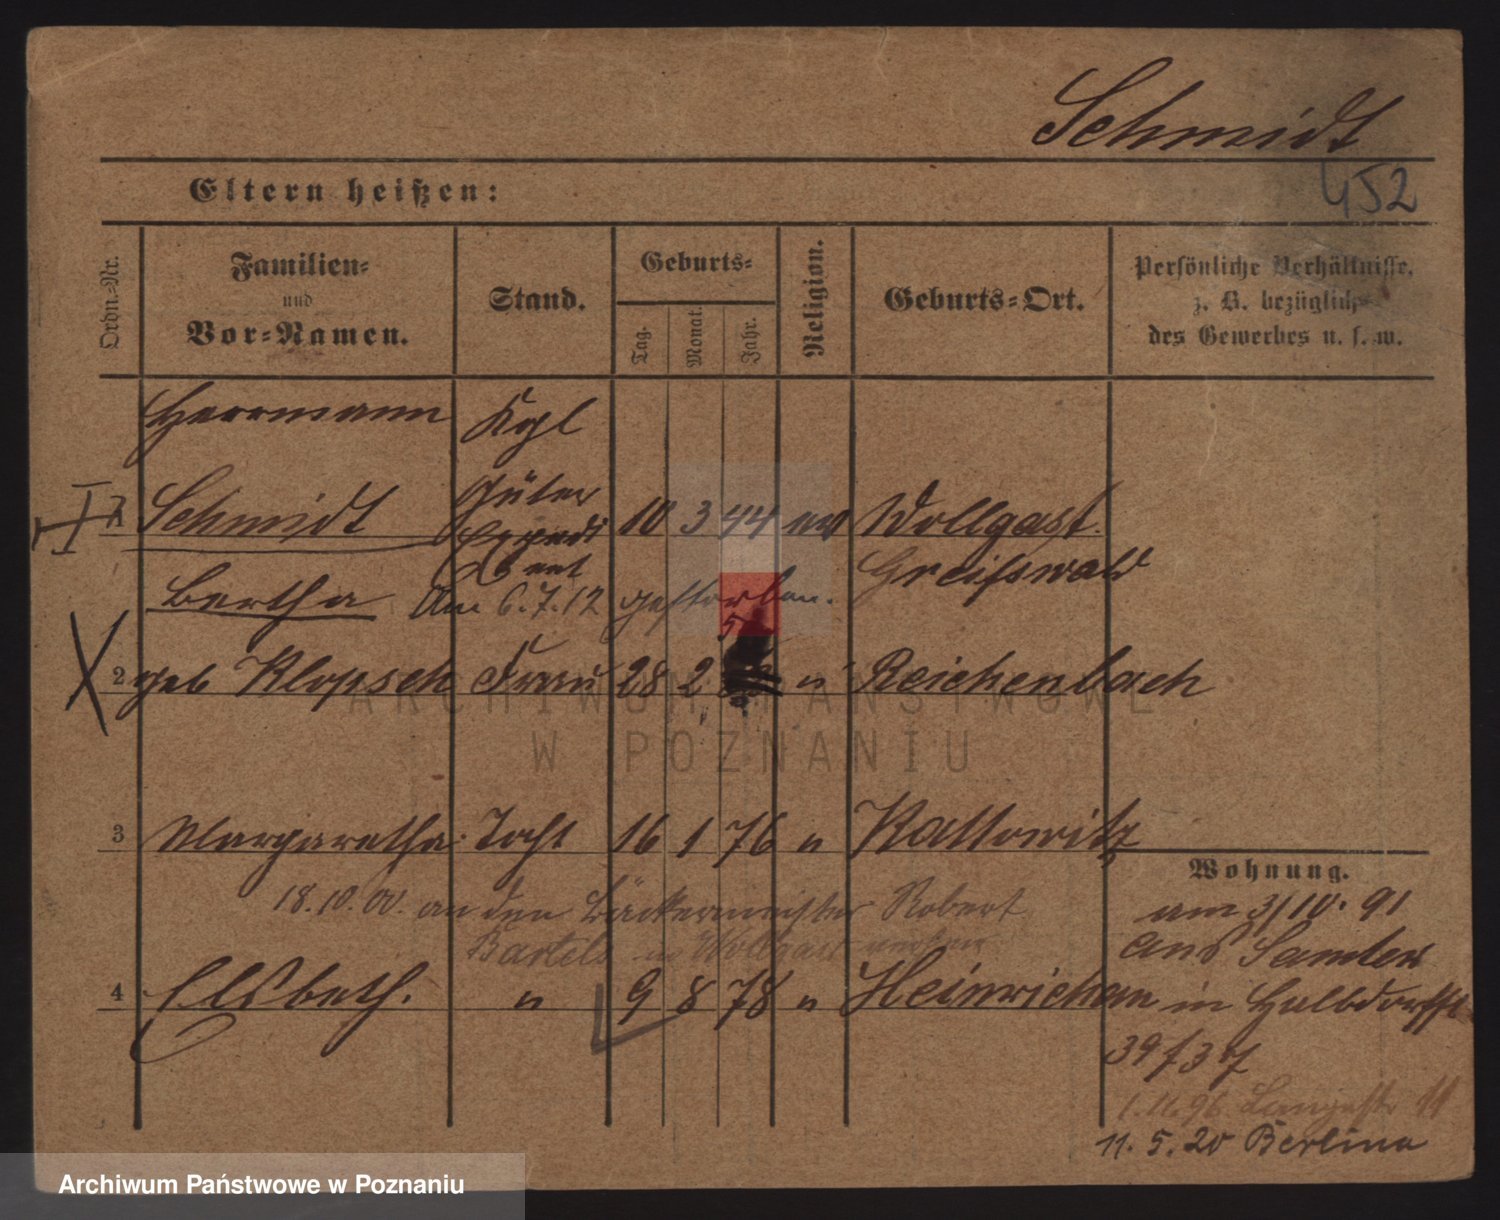 Schmidt
Eltern heißen:
452
Ordn.-Nr.
Familien-
und
Vor-Namen.
Stand.
Geburts-
Tag.
Monat.
Jahr.
Religion.
Geburts-Ort.
Persönliche Verhältnisse,
z. B. bezüglich
des Gewerbes u. s. w.
Herrmann Kgl
Schmidt Güter 10 3 44 Wollgast.
Expedi
ent Greifswald
Bertha Am 6.7.12 gestorben.
5
2 geb Klopsch Frau 28 2 " Reichenbach
ARCHIWUM PAŃSTWOWE
W POZNANIU
3 Margaretha Tocht 16 1 76 " Kattowitz
Wohnung.
18.10.00. an den Bäckermeister Robert
Bartels in Wollgast
am 3/10. 91
aus Samter
4 Elsbeth. " 9 8 78 " Heinrichau
in Halbdorfstr
39
1.11.96 Langestr 11
11. 5. 20 Berlin
Archiwum Państwowe w Poznaniu